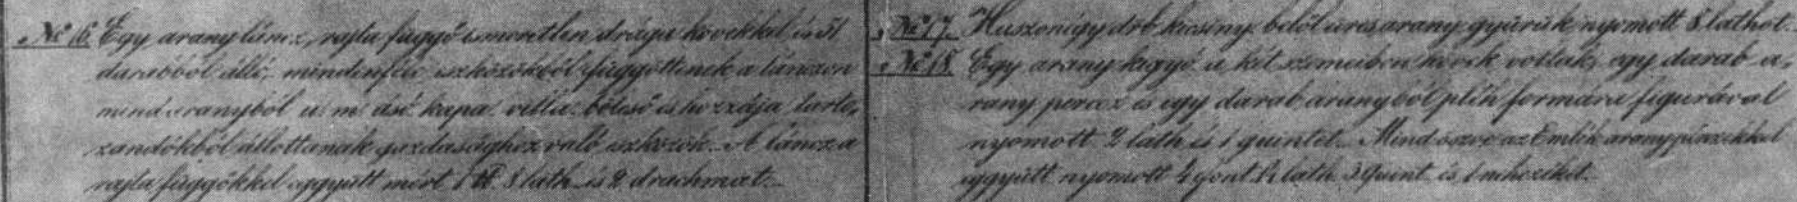 „No 16. Egy arany láncz, rajta függő ismeretlen drága kövekkel és 51
darabból álló, mindenféle eszközökből függöttenek a lánczon
mind aranyból u. m. ásó kapa villa bölcső és hozzája tarto„
zandókból állottanak gazdasághoz való eszközök. A láncz a
rajta függőkkel eggyütt mért 1 ℔ 8 lath és 2 drachmat.
„No 17. Huszonégy drb kicsiny belől üres arany gyűrűk nyomott 8 lathot.
„No 18. Egy arany kigyó a két szemeiben kövek voltak, egy darab a„
rany perecz és egy darab aranyból pléh formára figurával
nyomott 2 lath és 1 quintet. Mind össze az Emlék aranypénzekkel
eggyütt nyomott 4 font 14 lath 3 Quint és 1 nehezéket.